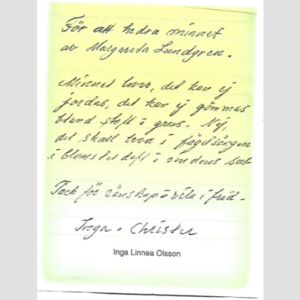 För att hedra minnet
av Margareta Lundgren.
Minnet lever, det kan ej
jordas, det kan ej gömmas
bland stoft o grus. Nej,
det skall leva i fågelsången
i blomsterdoft o vindens sus
Tack för vänskap o vila i frid.
Inga o Christer
Inga Linnea Olsson